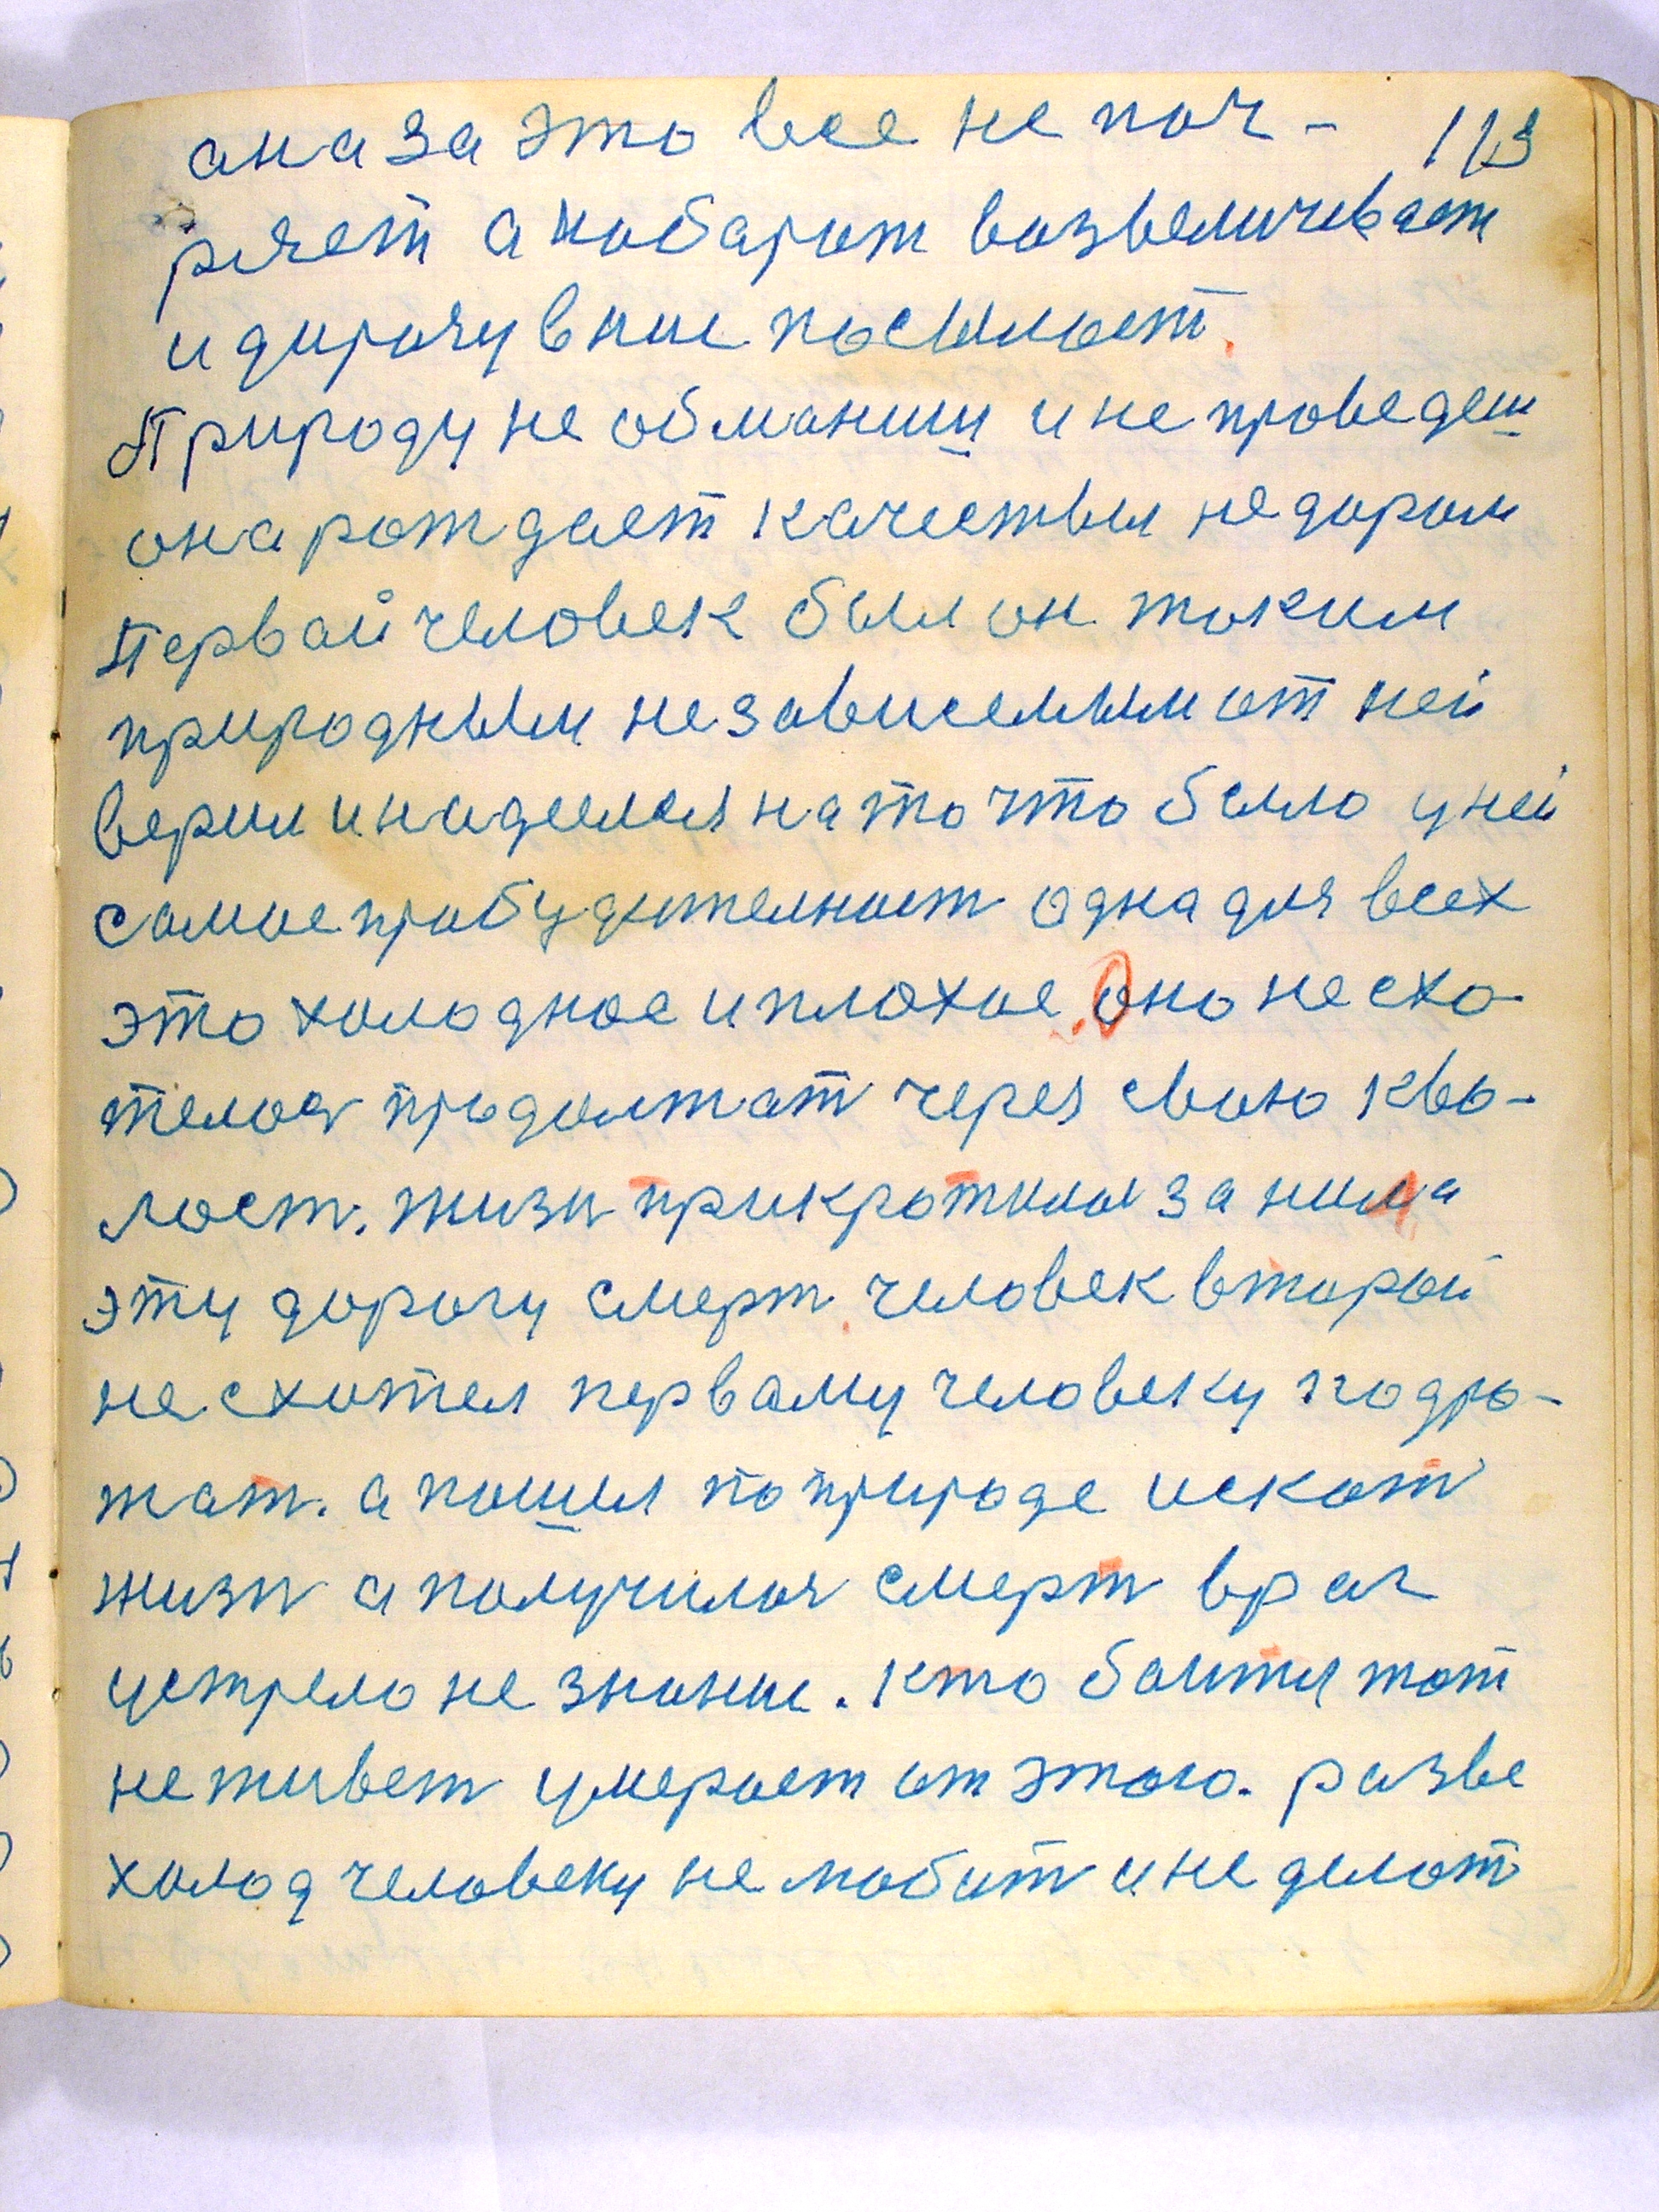 она за это все не поч- 113
ряет а наобарот возвеличевает
и дорогу в ние посылает.
Природу не обманиш и не проведеш
она рождает качествы не даром
Первай человек был он таким
природным независемым от ней
верил и надеелся на то что было у ней
самое пробудителност одна для всех
это холодное и плохое. Оно не схо-
телося продолжат через свою хво-
лост. жизн прикротилас за нима
эту дорогу смерт. человек вторай
не схотел первому человеку подро-
жат. а пошел по природе искат
жизн а получилас смерт враг
устрело не знание. кто баится тот
не живет умерает от этого. разве
холод человеку не любит и не делат